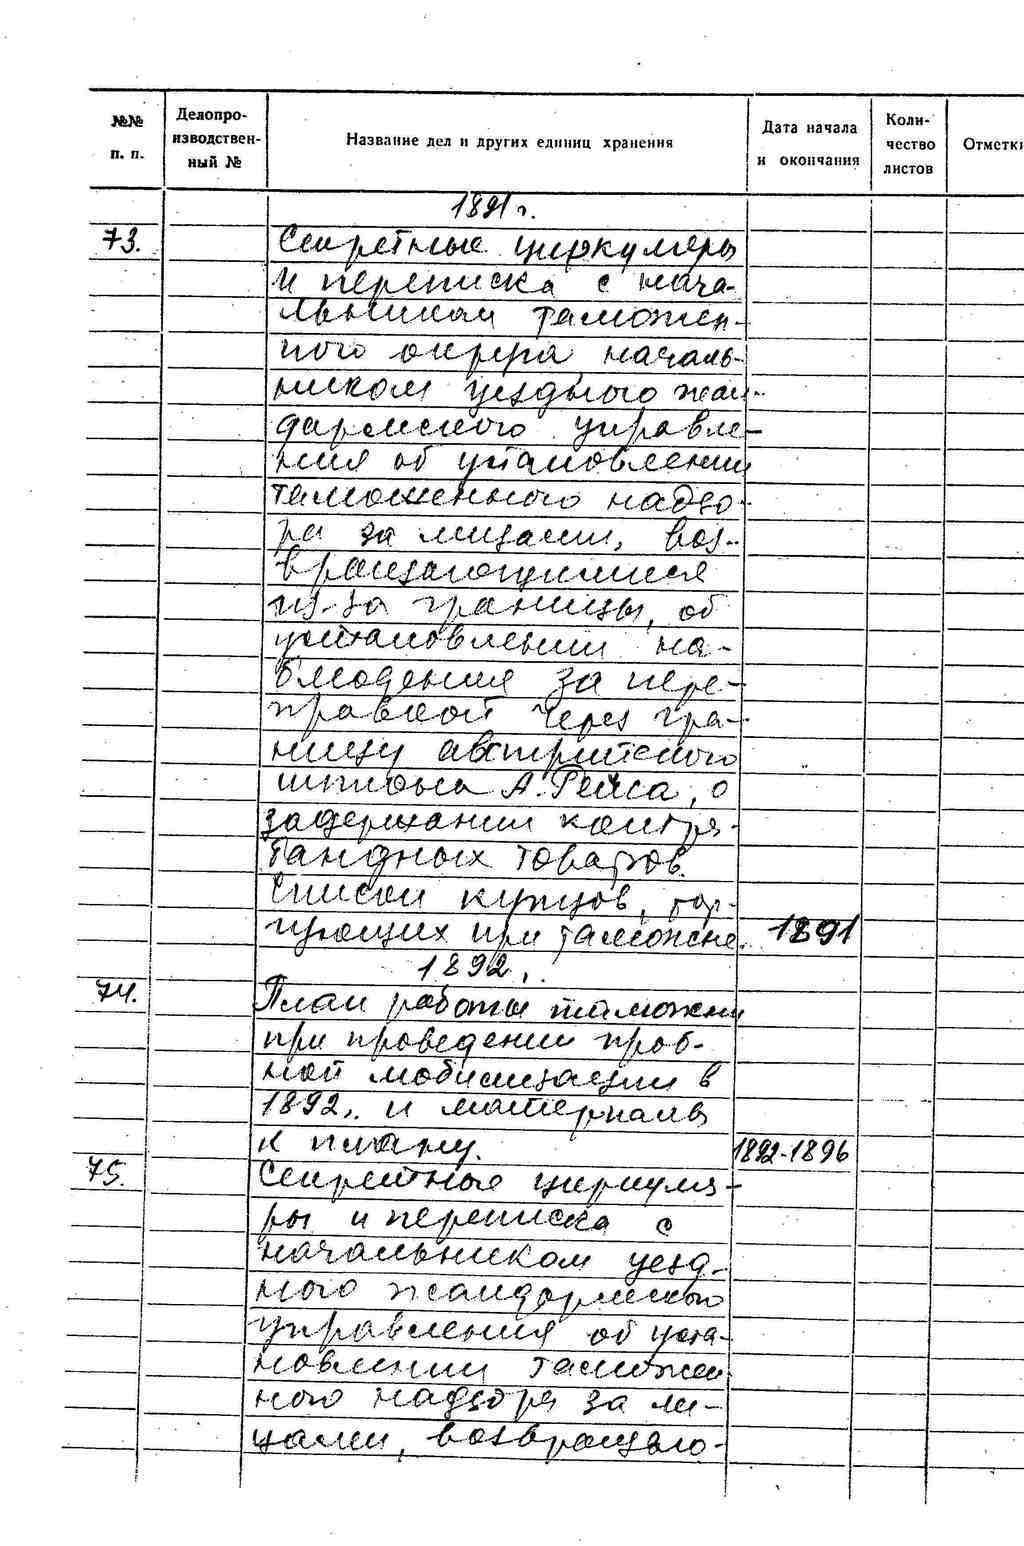 №№ п. п. Делопроизводственный № Название дел и других единиц хранения Дата начала и окончания Количество листов Отметки
1891 г.
73. Секретные циркуляры
и переписка с нача-
льником таможен-
ного округа, началь-
ником уездного жан-
дармского управле-
ния об установлении
таможенного надзо-
ра за лицами, воз-
вращающимися
из-за границы, об
установлении на-
блюдения за пере-
правкой через гра-
ницу австрийского
шпиона А. Рейса, о
задержании контра-
бандных товаров.
Списки купцов, тор-
гующих при таможне. 1891
1892 г.
74. План работы таможни
при проведении проб-
ной мобилизации в
1892 г. и материалы
к плану. 1892-1896
75. Секретные циркуля-
ры и переписка с
начальником уезд-
ного жандармского
управления об уста-
новлении таможен-
ного надзора за ли-
цами, возвращаю-